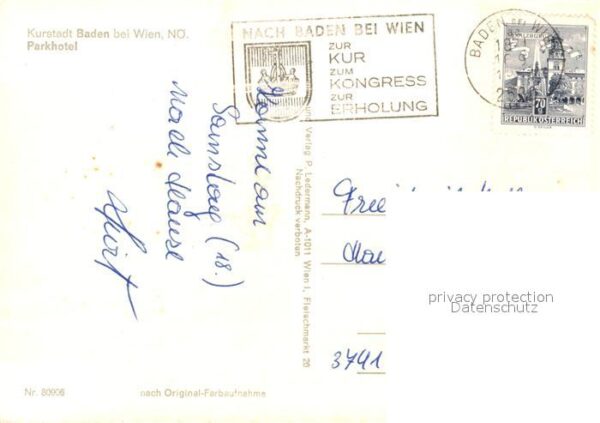 Kurstadt Baden bei Wien, NÖ.
Parkhotel
NACH BADEN BEI WIEN
ZUR
KUR
ZUM
KONGRESS
ZUR
ERHOLUNG
BADEN BEI WIEN
70
REPUBLIK ÖSTERREICH
Komme am
Samstag (18.)
nach Hause
Verlag P. Ledermann, A-1011 Wien I, Fleischmarkt 26
Nachdruck verboten
3741
privacy protection
Datenschutz
Nr. 80906
nach Original-Farbaufnahme